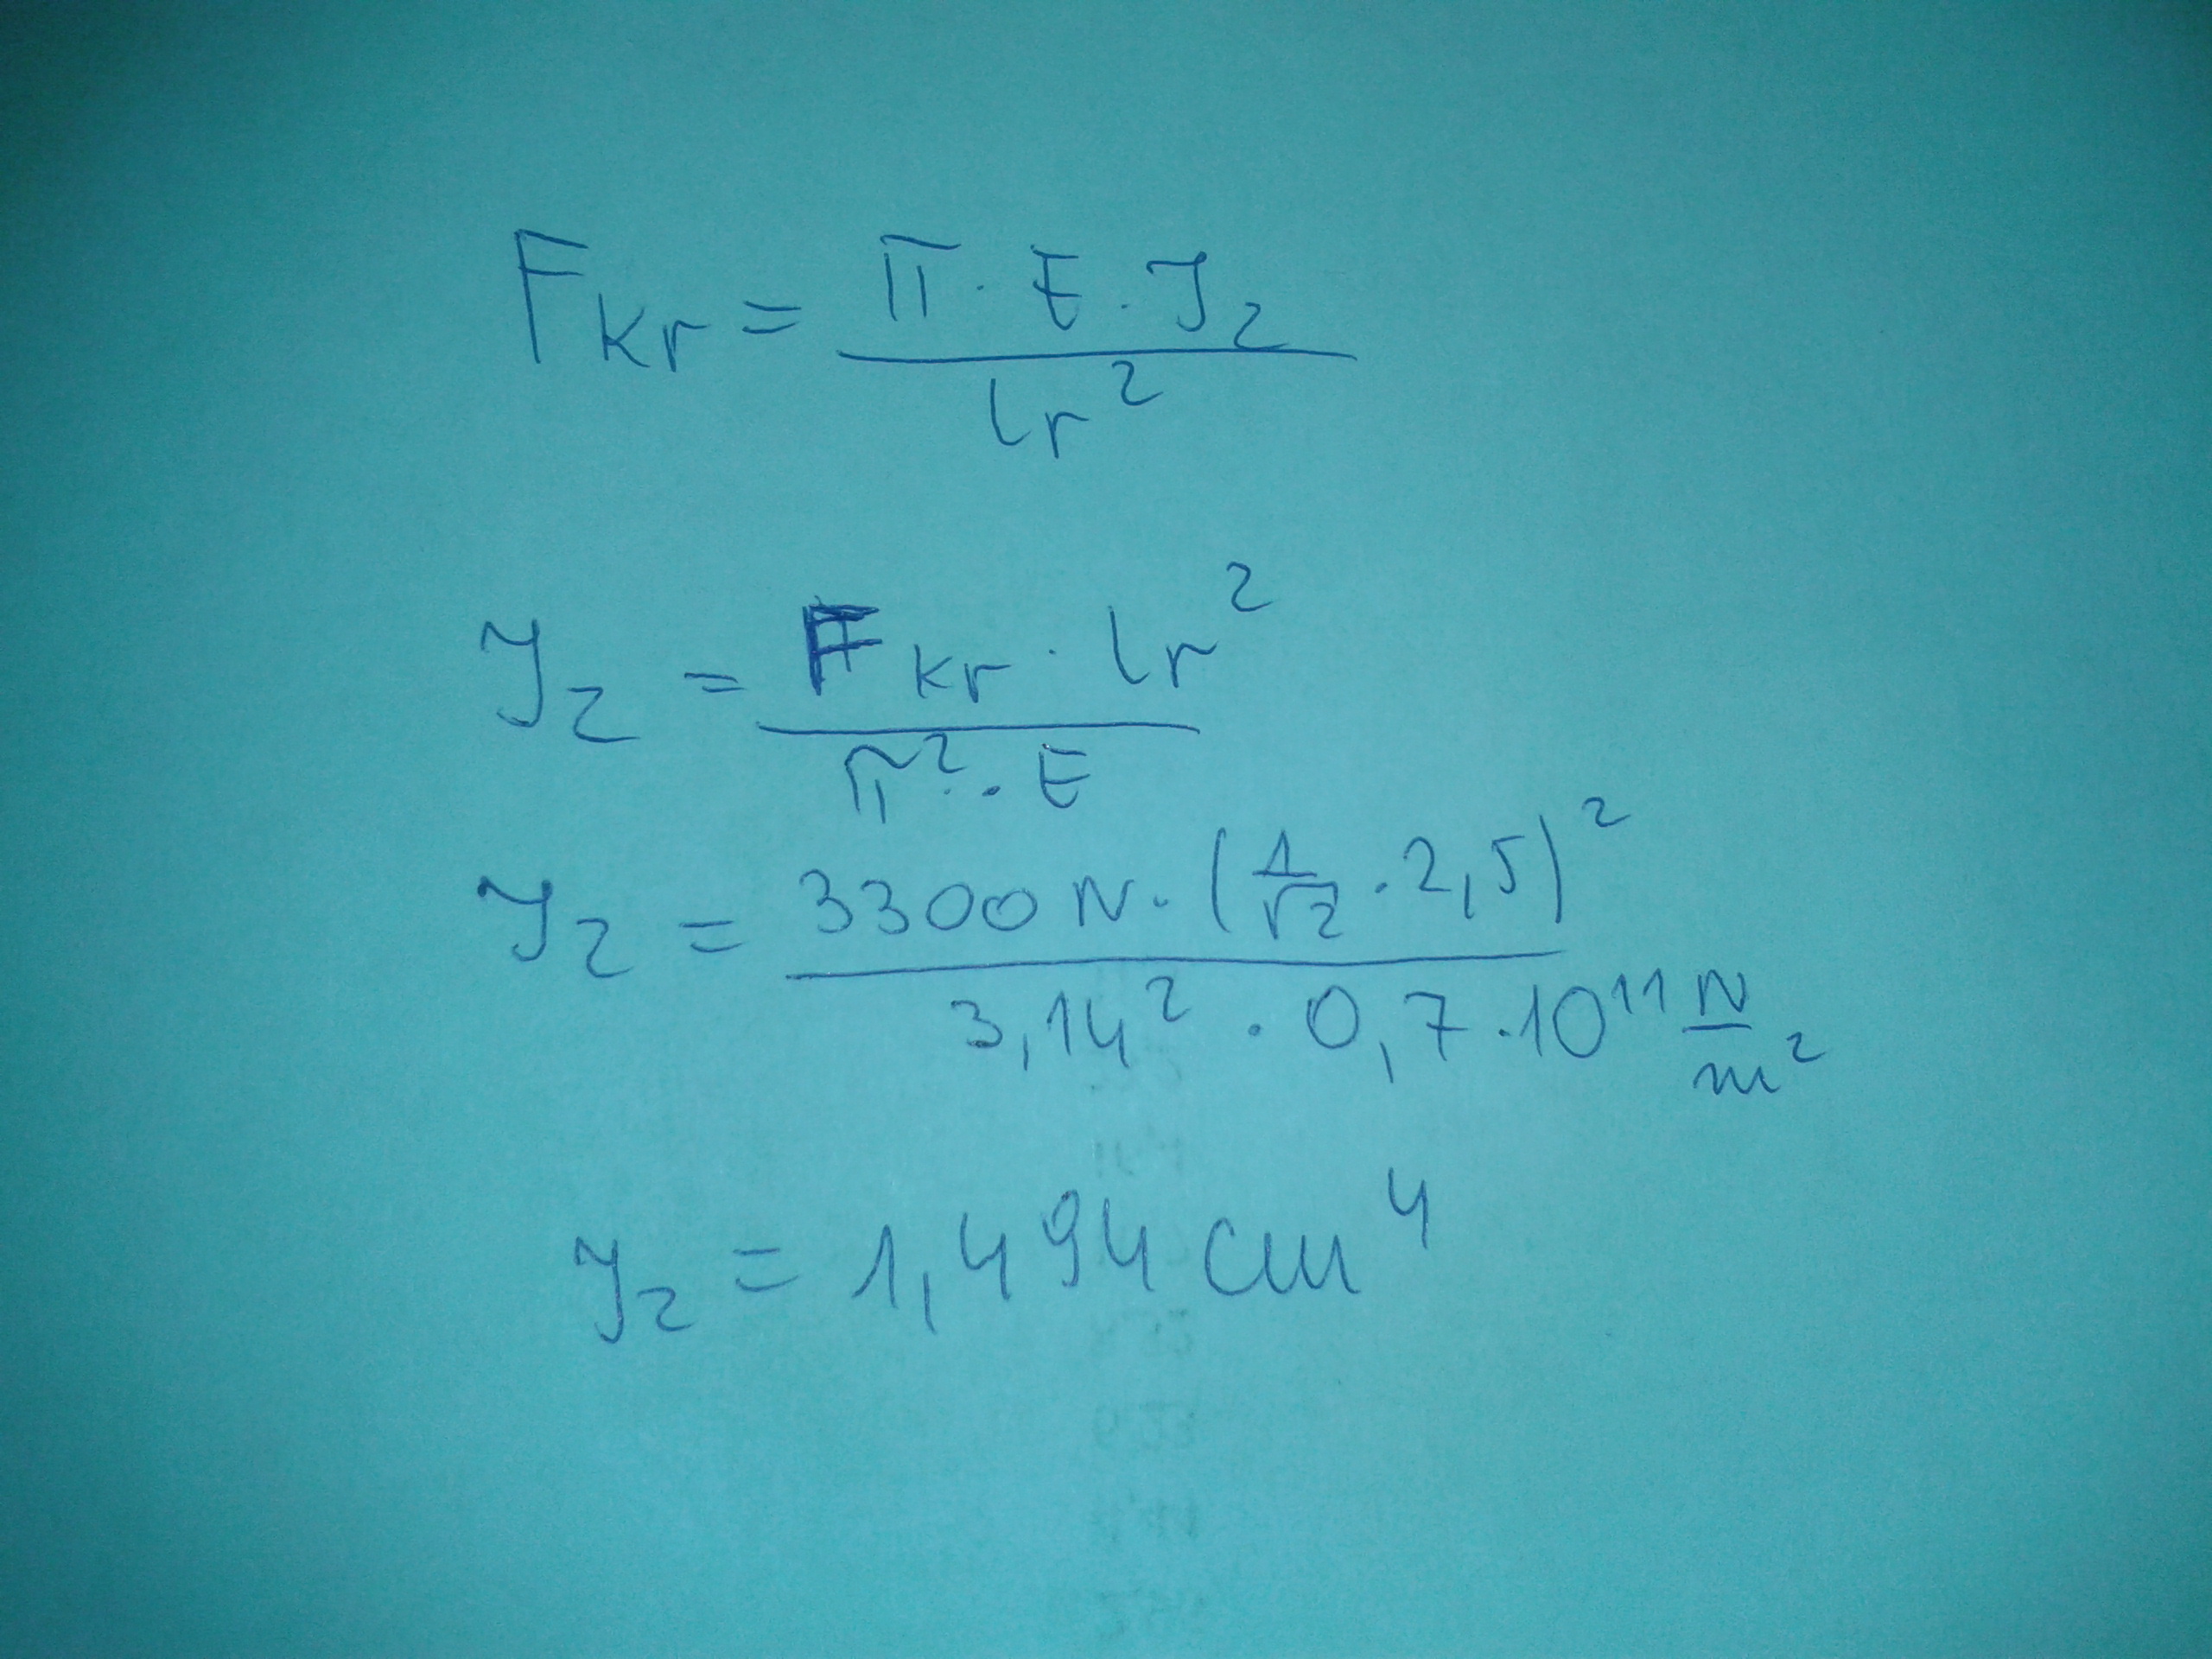 Fkr = π · E · J2 / lr²
J2 = Fkr · lr² / π² · E
J2 = 3300 N · (1/√2 · 2,5)² / 3,14² · 0,7 · 10¹¹ N/m²
J2 = 1,494 cm⁴